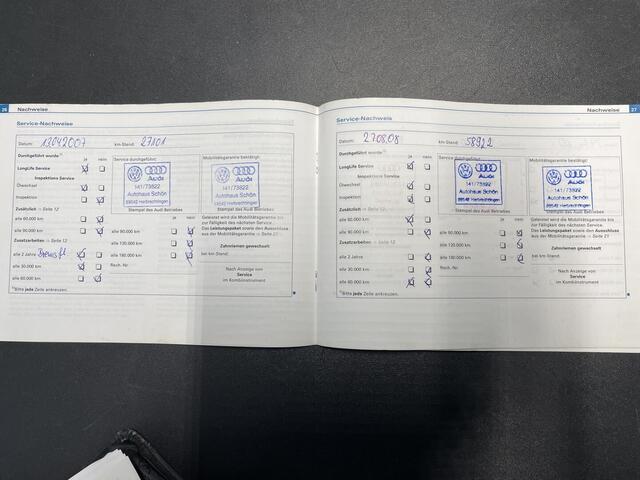 26 Nachweise
Service-Nachweise
Datum: 13.04.2007 km-Stand: 27101
Durchgeführt wurde
ja nein
LongLife Service
Inspektions Service
Ölwechsel
Inspektion
Zusätzlich ⇒ Seite 12
alle 60.000 km
alle 90.000 km
Zusatzarbeiten ⇒ Seite 12
alle 2 Jahre
alle 30.000 km
alle 60.000 km
Bitte jede Zeile ankreuzen.
Service durchgeführt:
Audi
141/73922
Autohaus Schön
89542 Herbrechtingen
Stempel des Audi Betriebes
ja nein
alle 90.000 km
alle 120.000 km
alle 180.000 km
Rech.-Nr.:
Mobilitätsgarantie bestätigt:
Audi
141/73922
Autohaus Schön
89542 Herbrechtingen
Stempel des Audi Betriebes
Geleistet wird die Mobilitätsgarantie bis
zur Fälligkeit des nächsten Service.
Das Leistungspaket sowie den Ausschluss
aus der Mobilitätsgarantie ⇒ Seite 21
Zahnriemen gewechselt
bei km-Stand:
Nach Anzeige von
Service
im Kombiinstrument
Nachweise 27
Service-Nachweis
Datum: 27.08.08 km-Stand: 58922
Durchgeführt wurde
ja nein
LongLife Service
Inspektions Service
Ölwechsel
Inspektion
Zusätzlich ⇒ Seite 12
alle 60.000 km
alle 90.000 km
Zusatzarbeiten ⇒ Seite 12
alle 2 Jahre
alle 30.000 km
alle 60.000 km
Bitte jede Zeile ankreuzen.
Service durchgeführt:
Audi
141/73922
Autohaus Schön
89542 Herbrechtingen
Stempel des Audi Betriebes
ja nein
alle 90.000 km
alle 120.000 km
alle 180.000 km
Rech.-Nr.:
Mobilitätsgarantie bestätigt:
Audi
141/73922
Autohaus Schön
89542 Herbrechtingen
Stempel des Audi Betriebes
Geleistet wird die Mobilitätsgarantie bis
zur Fälligkeit des nächsten Service.
Das Leistungspaket sowie den Ausschluss
aus der Mobilitätsgarantie ⇒ Seite 21
Zahnriemen gewechselt
bei km-Stand:
Nach Anzeige von
Service
im Kombiinstrument